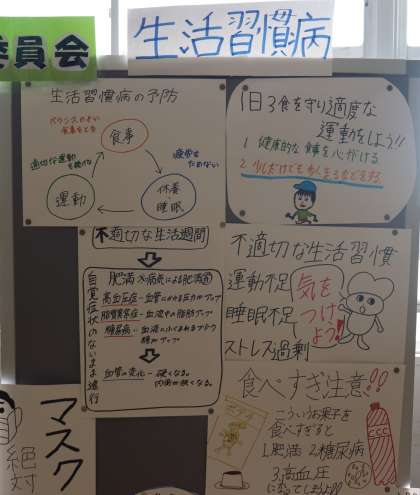 委員会
生活習慣病
生活習慣病の予防
バランスのよい
食事をとる
食事
適切な運動
疲労を
ためない
運動
休養
睡眠
1日3食を守り適度な
運動をしよう!!
1. 健康的な食事を心がける
2. 少しだけでも歩くなどをする
不適切な生活週間
自覚症状のないまま進行
肥満
による肥満
高血圧症…血管にかかる圧力がアップ
脂質異常症…血液中の脂肪アップ
糖尿病…血液にふくまれるブドウ
糖がアップ
血管の変化…硬くなる。
内側が狭くなる。
不適切な生活習慣
運動不足
睡眠不足
ストレス過剰
気を
つけ
よう!
食べすぎ注意!!
こういうお菓子を
食べすぎると
1.肥満 2.糖尿病
3.高血圧
になってしまう!!
マスク
絶対